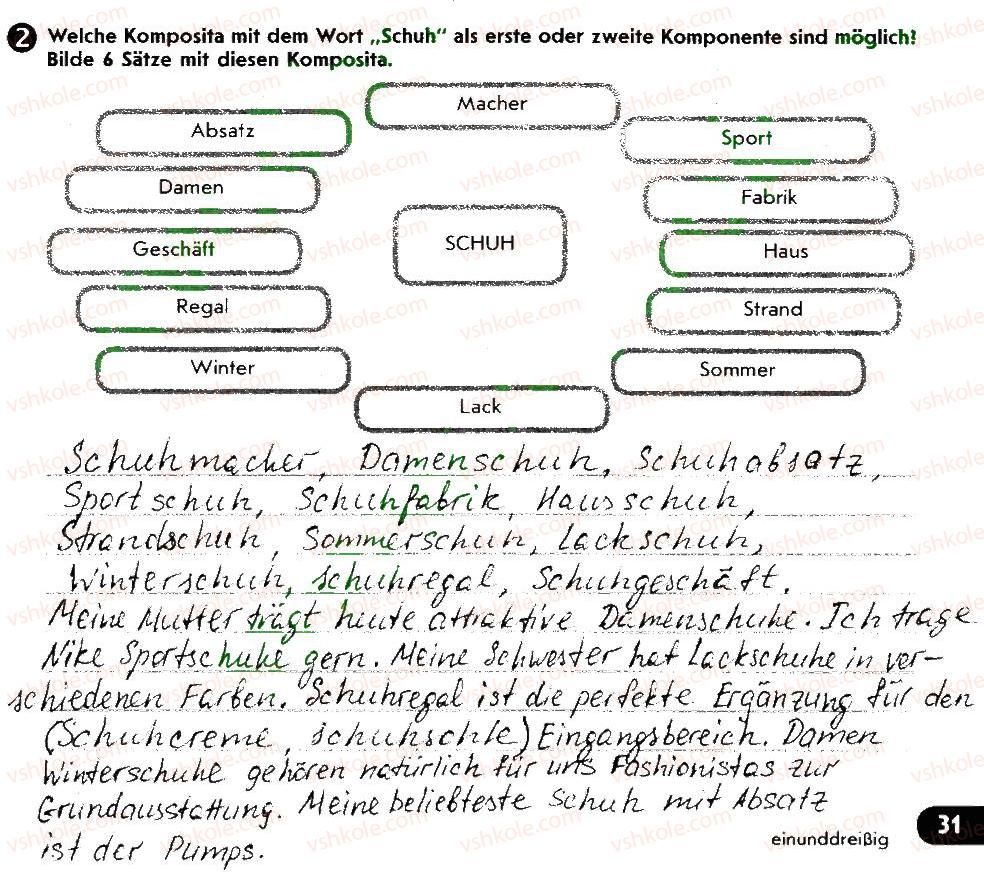 2 Welche Komposita mit dem Wort „Schuh" als erste oder zweite Komponente sind möglich?
Bilde 6 Sätze mit diesen Komposita.
Macher
Absatz
Sport
Damen
Fabrik
Geschäft
SCHUH
Haus
Regal
Strand
Winter
Sommer
Lack
Schuhmacher, Damenschuh, Schuhabsatz,
Sportschuh, Schuhfabrik, Hausschuh,
Strandschuh, Sommerschuh, Lackschuh,
Winterschuh, Schuhregal, Schuhgeschäft.
Meine Mutter trägt heute attraktive Damenschuhe. Ich trage
Nike Sportschuhe gern. Meine Schwester hat Lackschuhe in ver-
schiedenen Farben. Schuhregal ist die perfekte Ergänzung für den
(Schuhcreme, Schuhsohle) Eingangsbereich. Damen
Winterschuhe gehören natürlich für uns Fashionistas zur
Grundausstattung. Meine beliebteste Schuh mit Absatz
ist der Pumps.
einunddreißig
31
vshkole.com